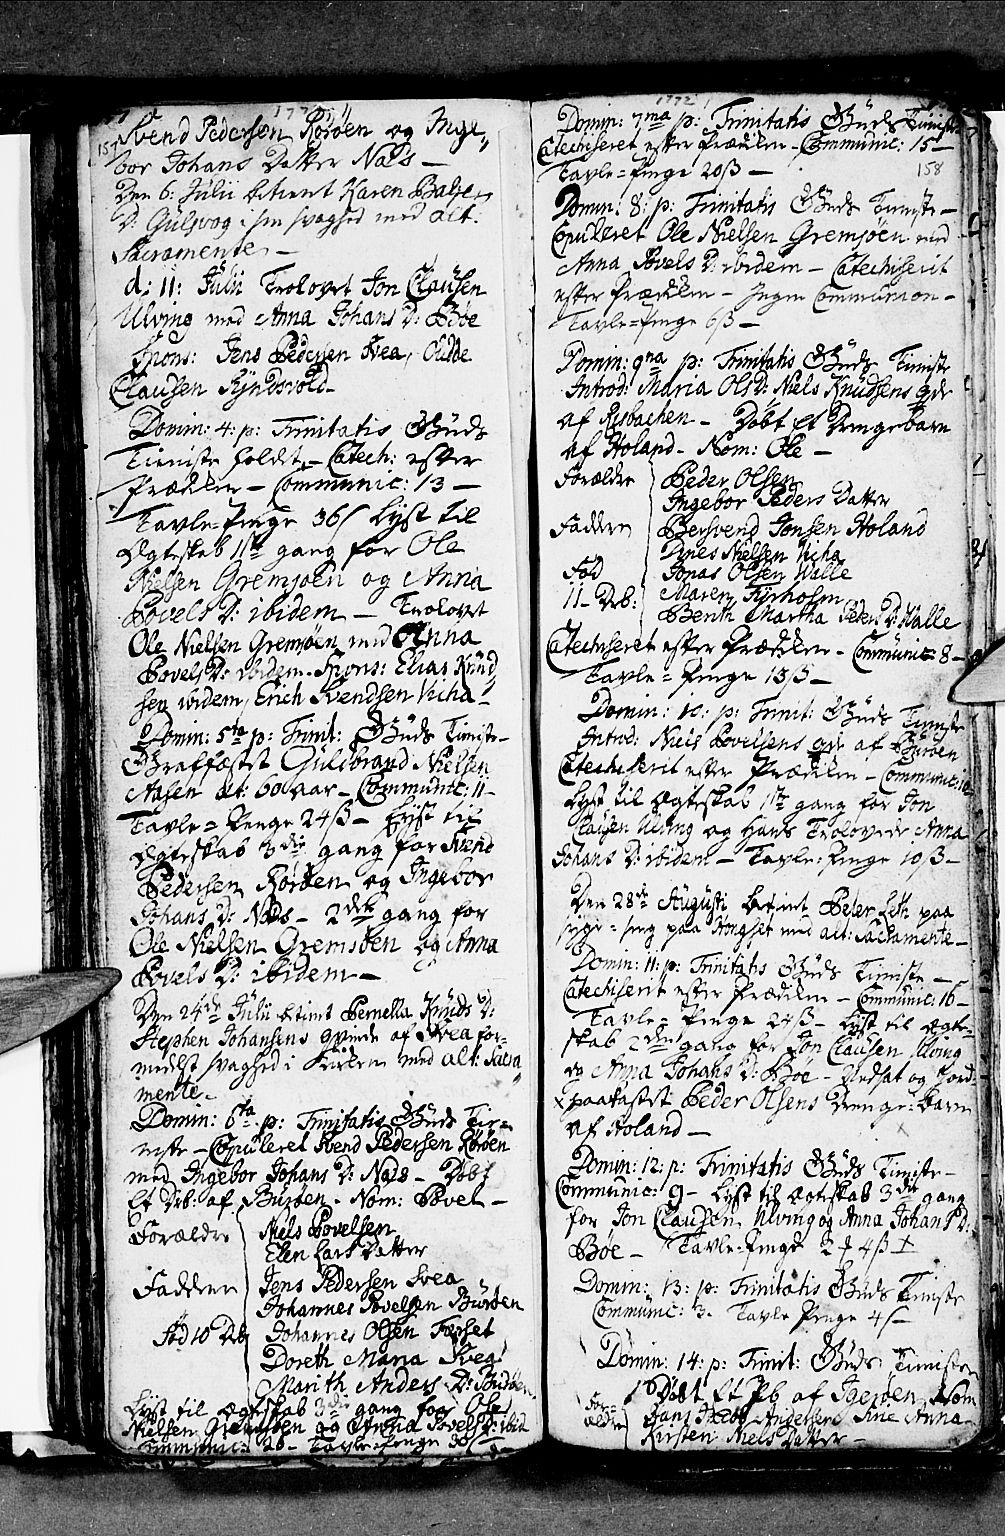 1772
157
Svend Pedersen Røroen og Inge„
bor Johans Datter Nads —
Den 6: Julii betient Karen Balzers
D: Gulsvog i sin svaghed med alt:
Sacramente —
d: 11: Julii Trolovet Jon Clausen
Ulving med Anna Johans D: Bøe
Spons: Jens Pedersen Svea, Oudde
Clausen
Domin: 4: p: Trinitatis Gûds
Tieniste holdt — Catech: efter
Prædiken — Communic: 13 —
Tavle-Penge 36 ß Lyst til
Ægteskab 1ste gang for Ole
Nielsen Gremsøen og Anna
Povels D: ibidem — Trolovet
Ole Nielsen Gremsøen med Anna
Povels D: ibidem. Spons: Elias Knud
sen ibidem, Erich Svendsen Vicha —
Domin: 5ta p: Trinit: Gûds Tieniste —
Graffæstet Guldbrand Nielsen
Aasen alt: 60 aar — Communic: 11 —
Tavle-Penge 24 ß — Lyst til
Ægteskab 3die gang for Svend
Pedersen Rørøen og Ingebor
Johans D: Nads — 2den gang for
Ole Nielsen Gremsøen og Anna
Povels D: ibidem —
Den 24de Julii betient Pernella Knuds D:
Stephen Johansens qvinde af Svea for-
medelst svaghed i Kirken med alt: Sacra„
mente —
Domin: 6ta p: Trinitatis Gûds Tie-
niste — Copuleret Svend Pedersen Rørøen
med Ingebor Johans D: Nads — Døbt
Et Drb: af Burøen — Nom: Povel —
Forældre Niels Povelsen
Elen Lars Datter
Faddere Jens Pedersen Svea
Johannes Povelsen Burøen
Fød 10 Johannes Olsen
Doreth Maria Svea
Marith Anders D: Burøen
Lyst til Ægteskab 3die gang for Ole
Nielsen Gremsøen og Anna Povels D: ibid
Communic: 26 — Tavle-Penge
1772
158
Domin: 7ma p: Trinitatis Gûds Tieniste
Catechiseret efter Prædiken — Communic: 15 —
Tavle-Penge 20 ß —
Domin: 8: p: Trinitatis Gûds Tieniste —
Copuleret Ole Nielsen Gremsøen med
Anna Povels D: ibidem — Catechiserit
efter Prædiken — Ingen Communion —
Tavle-Penge 6 ß —
Domin: 9na p: Trinitatis Gûds Tieniste
Introd: Maria Ols D: Niels Knudsens qvde
af Risbachen — Døbt Et Drengebarn
af Holand — Nom: Ole —
Forældre Peder Olsen
Ingebor Peders Datter
Faddere Bersvend Jonsen Holand
Nielsen Vicha
Fød Jonas Olsen Walle
11 — Maren Fyrholm
Benth Martha Peders D: Walle
Catechiseret efter Prædiken — Communic: 8 —
Tavle-Penge 13 ß —
Domin: 10: p: Trinit: Gûds Tieniste
Introd: Niels Povelsens qde af Burøen
Catechiserit efter Prædiken — Communic: 12
Lyst til Ægteskab 1ste gang for Jon
Clausen Ulving og Hans Trolovede Anna
Johans D: ibidem — Tavle-Penge 10 ß —
Den 28de Augusti betient Peter paa
syge-seng paa Hongset med alt: Sacramente —
Domin: 11: p: Trinitatis Gûds Tieniste —
Catechiserit efter Prædiken — Communic: 16 —
Tavle-Penge 24 ß — Lyst til Ægte-
skab 2den gang for Jon Clausen Ulving
og Anna Johans D: Bøe — Nedsat og Jord-
paakastet Peder Olsens Drenge-barn
af Holand —
Domin: 12: p: Trinitatis Gûds Tieniste —
Communic: 9 — Lyst til Ægteskab 3die gang
for Jon Clausen Ulving og Anna Johans D:
Bøe — Tavle-Penge 2 4 ß
Domin: 13: p: Trinitatis Gûds Tieniste
Communic: 3. Tavle Penge 4 ß —
Domin: 14: p: Trinit: Gûds Tieniste
Døbt Et Pb af Igerøen, Nom
For- Hans Angelsen Anna
ældre Kirsten Niels Datter —